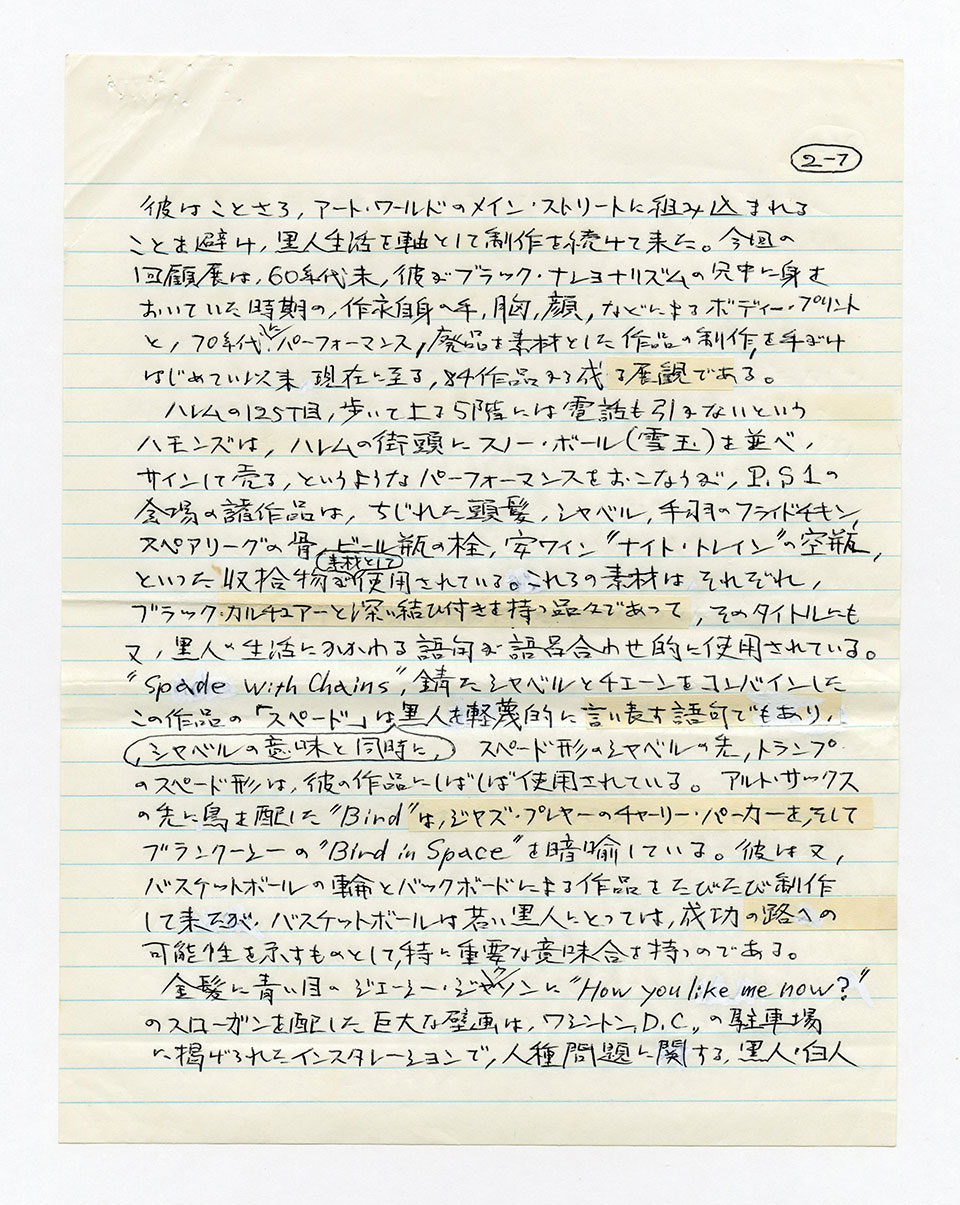 2-7
彼はことさら，アート・ワールドのメイン・ストリートに組み込まれる
ことを避け，黒人生活を軸として制作を続けて来た。今回の
回顧展は，60年代末，彼がブラック・ナショナリズムの只中に身を
おいていた時期の，作家自身の手，胸，顔，などによるボディー・プリント
と，70年代にパーフォーマンス，廃品を素材とした作品の制作を手がけ
はじめて以来 現在に至る，84作品から成る展観である。
ハレムの125丁目，歩いて上る5階には電話も引かないという
ハモンズは，ハレムの街頭にスノー・ボール（雪玉）を並べ，
サインして売る，というようなパーフォーマンスをおこなうが，P.S 1の
会場の諸作品は，ちじれた頭髪，シャベル，手羽のフライドチキン，
スペアリーグの骨，ビール瓶の栓，安ワイン“ナイト・トレイン”の空瓶，
といった収拾物が素材として使用されている。これらの素材はそれぞれ，
ブラック・カルチュアーと深い結び付きを持つ品々であって，そのタイトルにも
又，黒人の生活にかかわる語句が語呂合わせ的に使用されている。
“Spade with Chains”，錆たシャベルとチェーンをコンバインした
この作品の「スペード」は黒人を軽蔑的に言い表す語句でもあり，
，シャベルの意味と同時に，スペード形のシャベルの先，トランプ
のスペード形は，彼の作品にしばしば使用されている。アルト・サックス
の先に鳥を配した“Bird”は，ジャズ・プレヤーのチャーリー・パーカーを，そして
ブランクーシーの“Bird in Space”を暗喩している。彼は又，
バスケットボールの輪とバックボードによる作品をたびたび制作
して来たが，バスケットボールは若い黒人にとっては，成功の路への
可能性を示すものとして，特に重要な意味合を持つのである。
金髪に青い目のジェーシー・ジャクソンに“How you like me now?”
のスローガンを配した巨大な壁画は，ワシントン，D.C.，の駐車場
に掲げられたインスタレーションで，人種問題に関する，黒人・白人